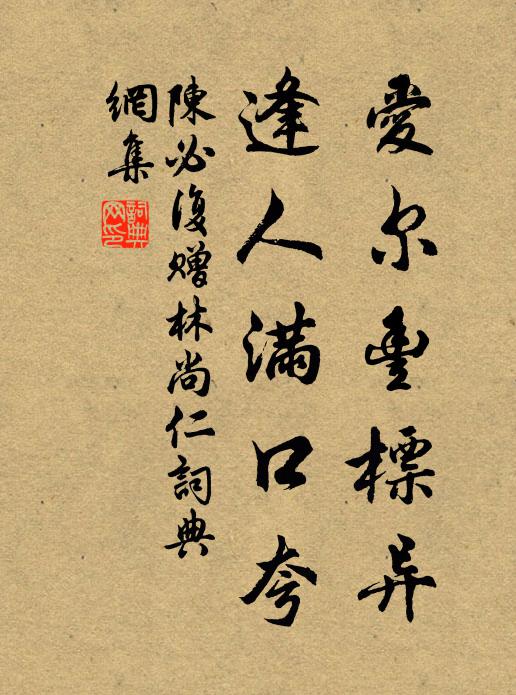 愛尔豐標异
逢人滿口夸
陳必復贈林尚仁詞典
網集
詞典
网印